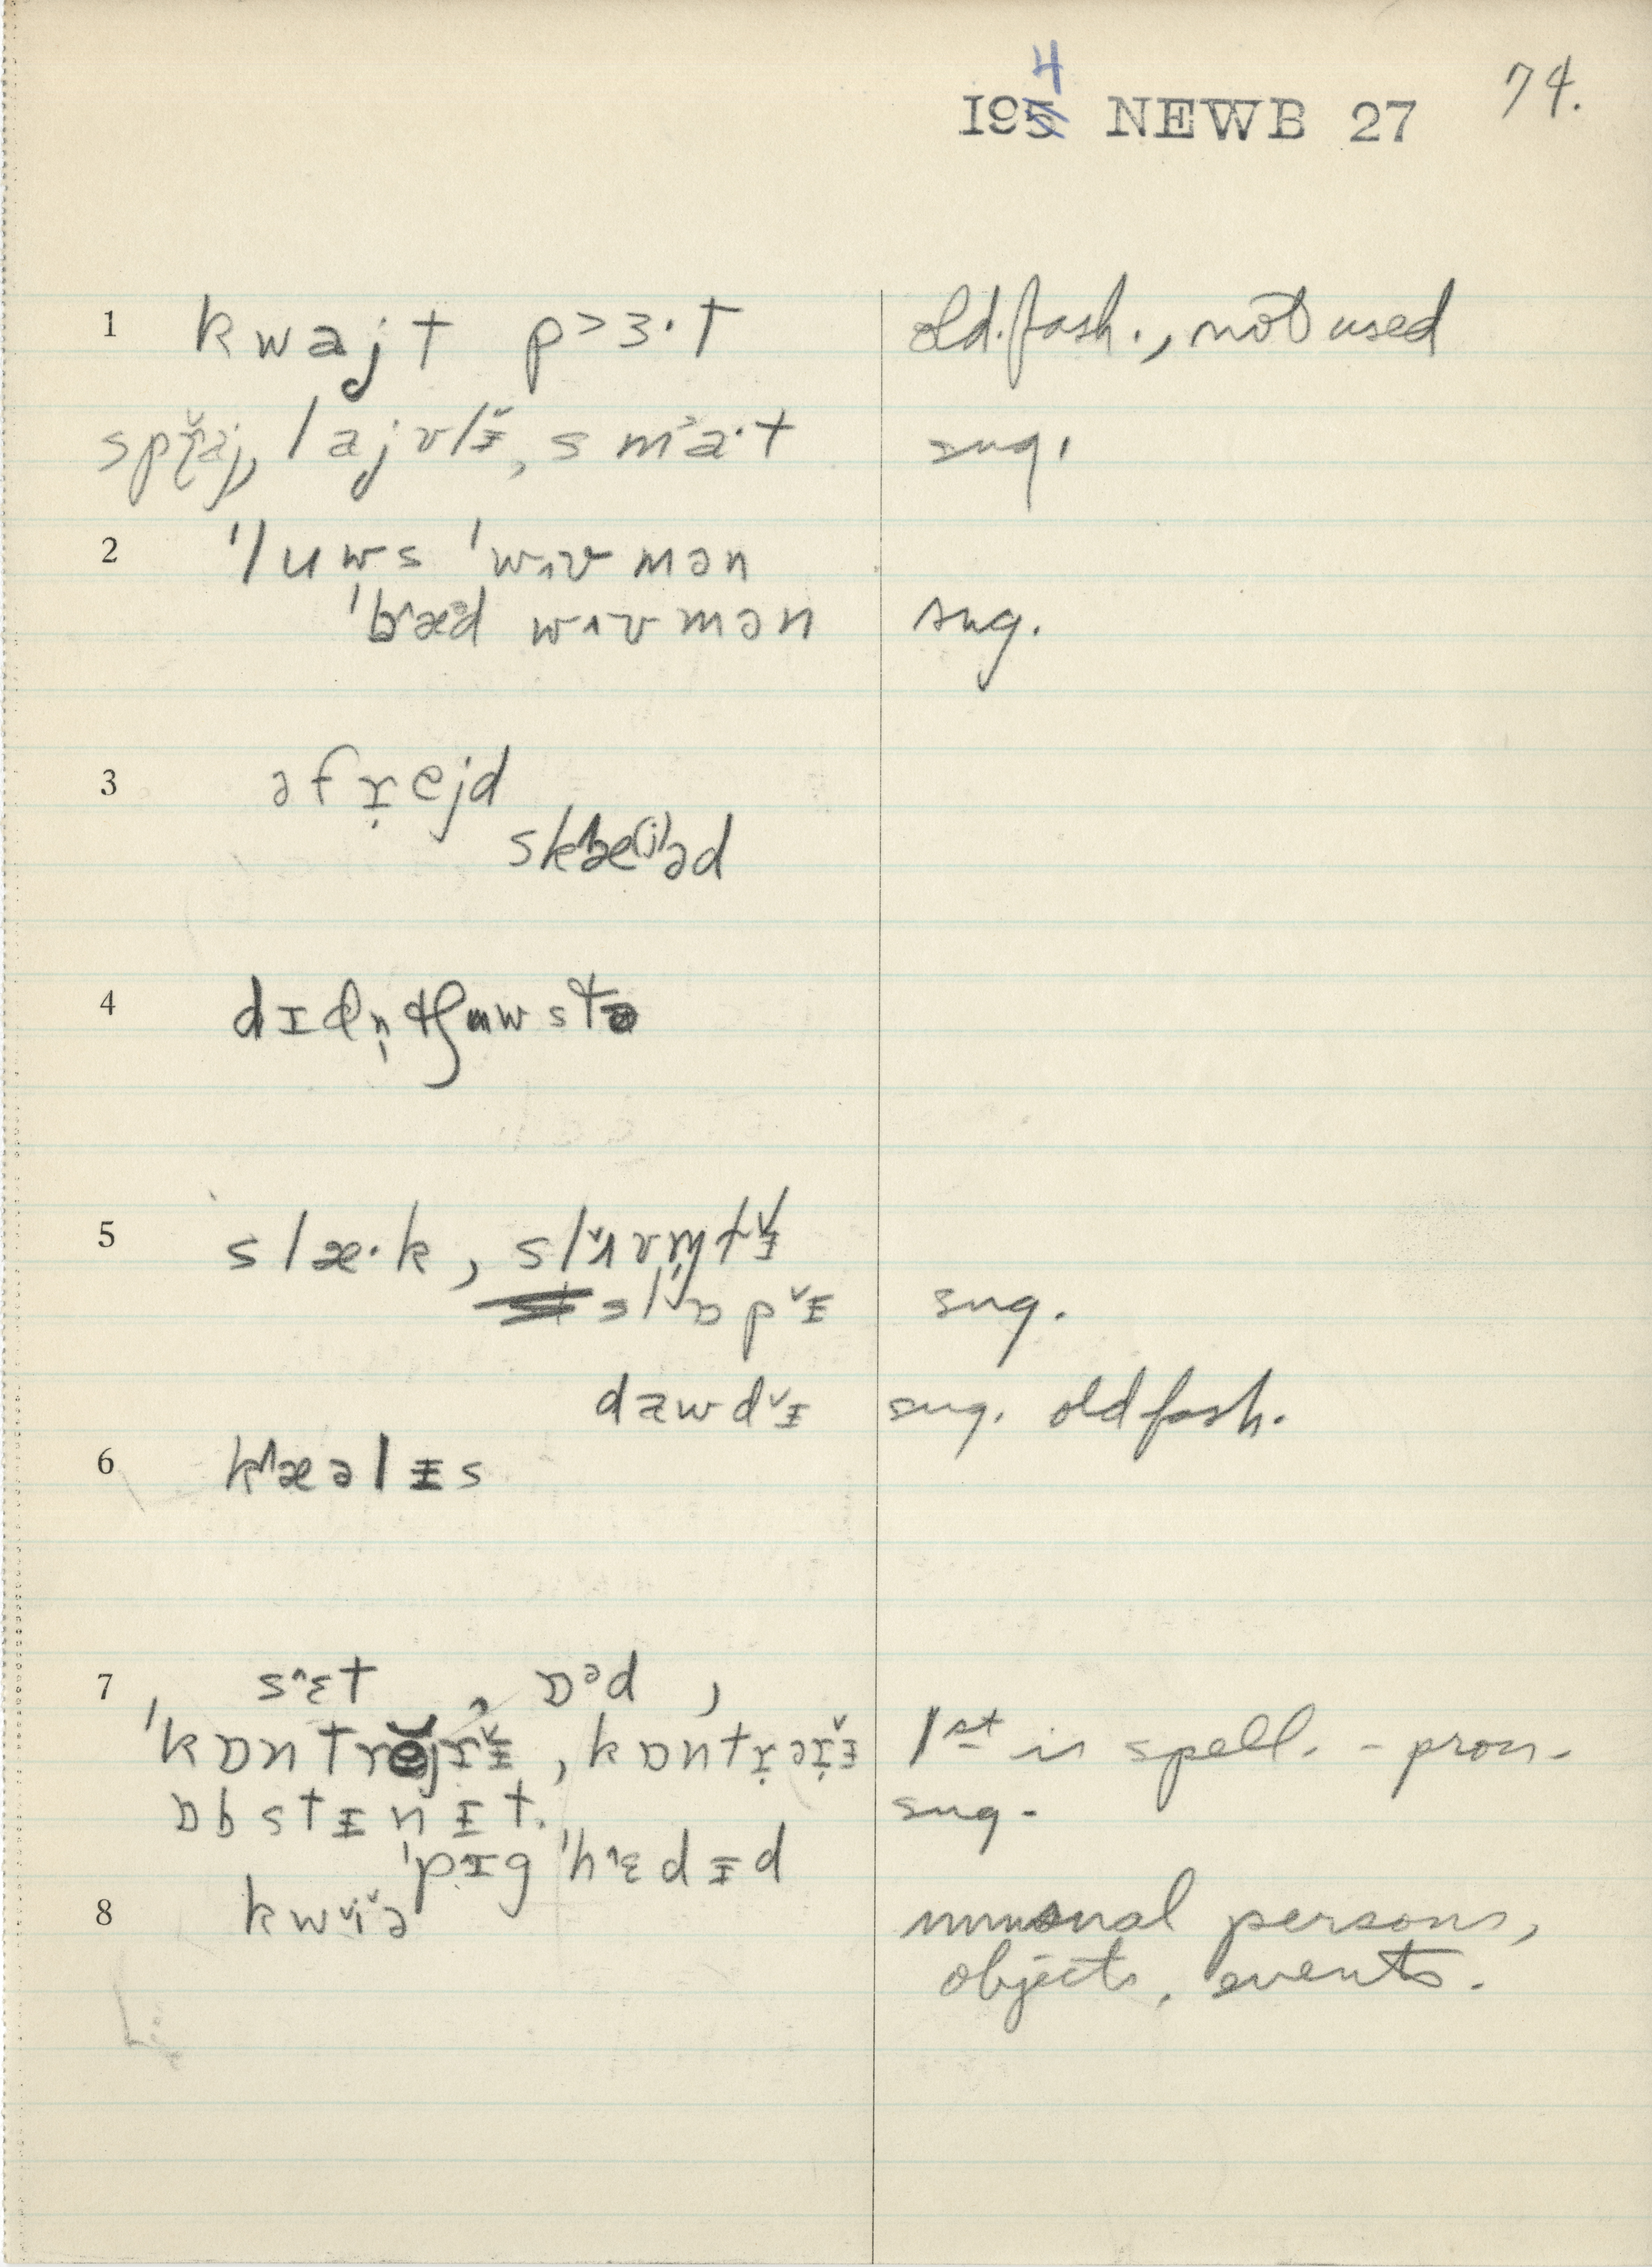 74.
1954 NEWB 27
1 kwajt p˃ɜ·t old.fash., not used
spɽ̌aj, lajvlɪ̵̌, smᵊa·t sug.
2 'luws 'wʌvmən
'b^æᵊd wʌvmən sug.
3 əfɽejd
sk^æ(j)əd
4 dɪdn̩ tʃuwstə
5 slæ·k, slʌ̌vm̩tɪ̵̌
slɒpˇɪ̵ sug.
dawdˇɪ̵ sug. old fash.
6 k^æəlɪ̵s
7 s^ɛt, ɒᵊd,
'kɒntrějrɪ̵̌, kɒntɽəɽɪ̵̌ 1st is spell. - pron.
ɒbstɪ̵nɪ̵t. sug.
'pɪg 'h^ɛdɪ̵d
8 kwˇiˇə unusual persons,
objects, events.